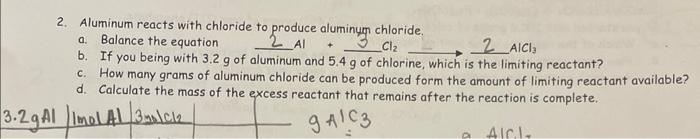 2. Aluminum reacts with chloride to produce aluminum chloride.
a. Balance the equation 2 Al + 3 Cl₂ → 2 AlCl₃
b. If you being with 3.2 g of aluminum and 5.4 g of chlorine, which is the limiting reactant?
c. How many grams of aluminum chloride can be produced form the amount of limiting reactant available?
d. Calculate the mass of the excess reactant that remains after the reaction is complete.
3.2gAl | 1mol Al | 3molCl2
g AlC3